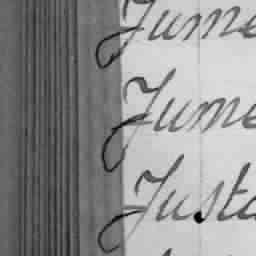 Jume
Jume
Justa